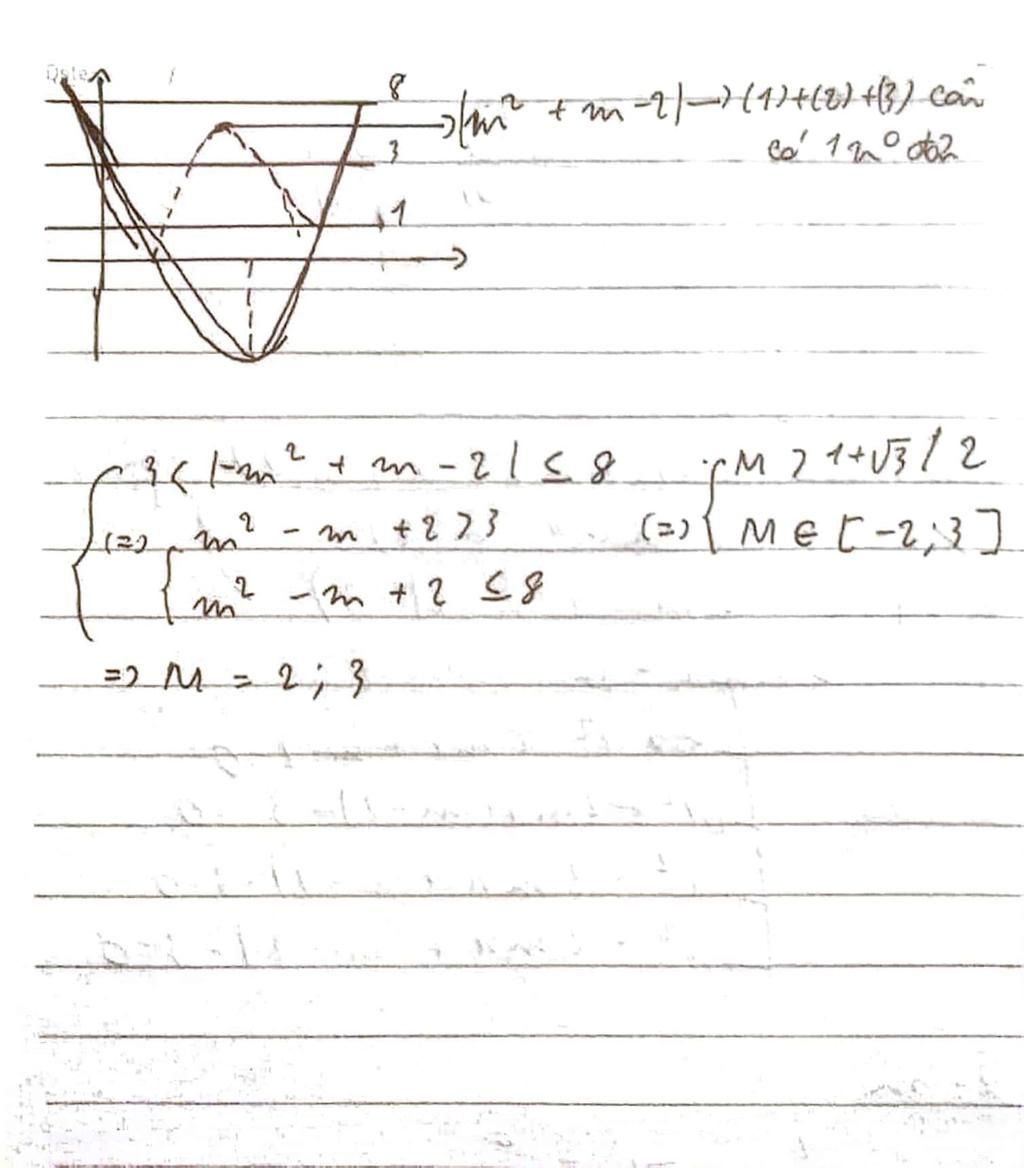 Date
8
|m² + m - 2| → (1)+(2)+(3) cần
có 1 n° đơn
3
1
3 < |-m² + m - 2| ≤ 8
(=) m² - m + 2 > 3
m² - m + 2 ≤ 8
(=) M > 1+√3 / 2
M ∈ [-2;3]
=> M = 2; 3